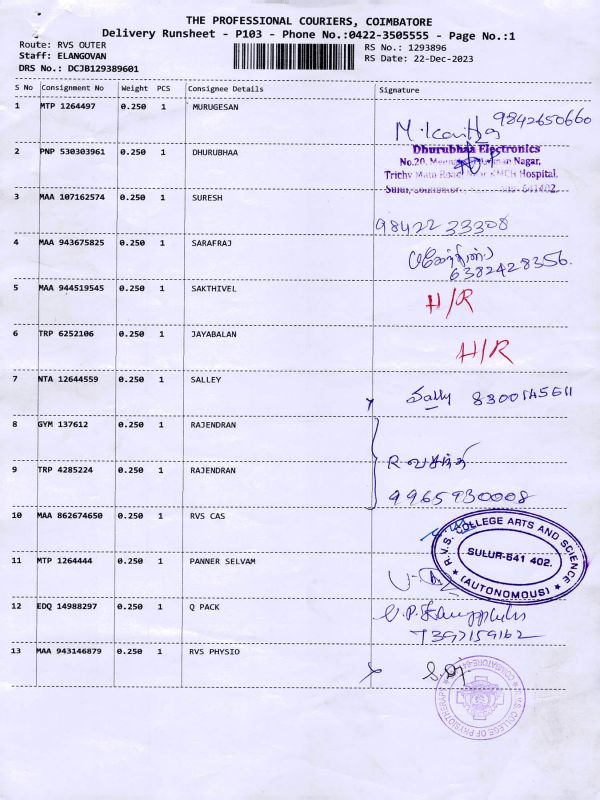 THE PROFESSIONAL COURIERS, COIMBATORE
Delivery Runsheet - P103 - Phone No.:0422-3505555 - Page No.:1
Route: RVS OUTER
RS No.: 1293896
Staff: ELANGOVAN
RS Date: 22-Dec-2023
DRS No.: DCJB129389601
S No Consignment No Weight PCS Consignee Details Signature
1 MTP 1264497 0.250 1 MURUGESAN
M. 9842650660
2 PNP 530303961 0.250 1 DHURUBHAA
Dhurubhaa Electronics
No.20, Nagar,
Trichy Main Road KMCH Hospital,
Sulur, 641402.
3 MAA 107162574 0.250 1 SURESH
98422 33308
4 MAA 943675825 0.250 1 SARAFRAJ
6382428356.
5 MAA 944519545 0.250 1 SAKTHIVEL H/R
6 TRP 6252106 0.250 1 JAYABALAN H/R
7 NTA 12644559 0.250 1 SALLEY
Sally 8300145611
8 GYM 137612 0.250 1 RAJENDRAN
R வசந்தி
9 TRP 4285224 0.250 1 RAJENDRAN
9965930008
10 MAA 862674650 0.250 1 RVS CAS
R.V.S. COLLEGE ARTS AND SCIENCE
SULUR-641 402.
(AUTONOMOUS)
11 MTP 1264444 0.250 1 PANNER SELVAM
12 EDQ 14988297 0.250 1 Q PACK
V.P.
7397159162
13 MAA 943146879 0.250 1 RVS PHYSIO
R.V.S. COLLEGE OF PHYSIOTHERAPY